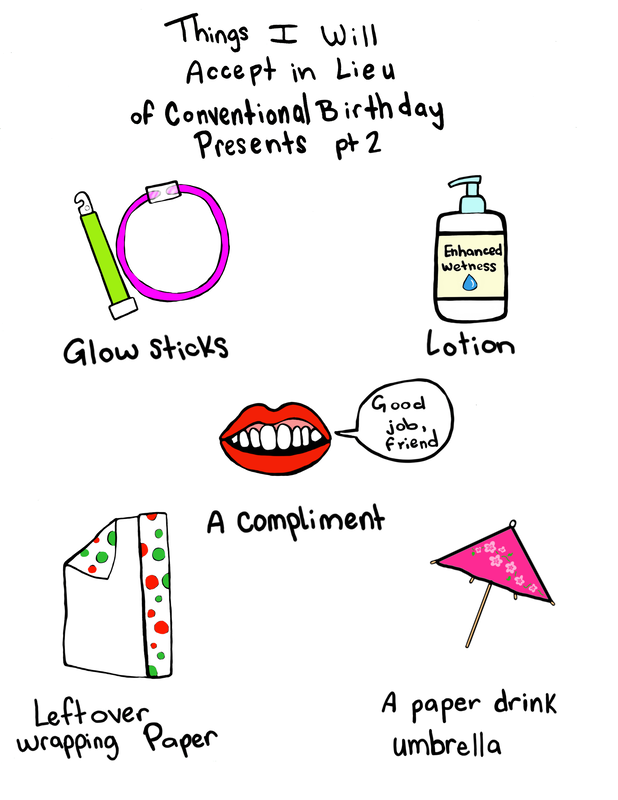 Things I Will
Accept in Lieu
of Conventional Birthday
Presents pt 2
Enhanced
Wetness
Glow sticks
Lotion
Good
job,
friend
A compliment
Leftover
wrapping Paper
A paper drink
umbrella